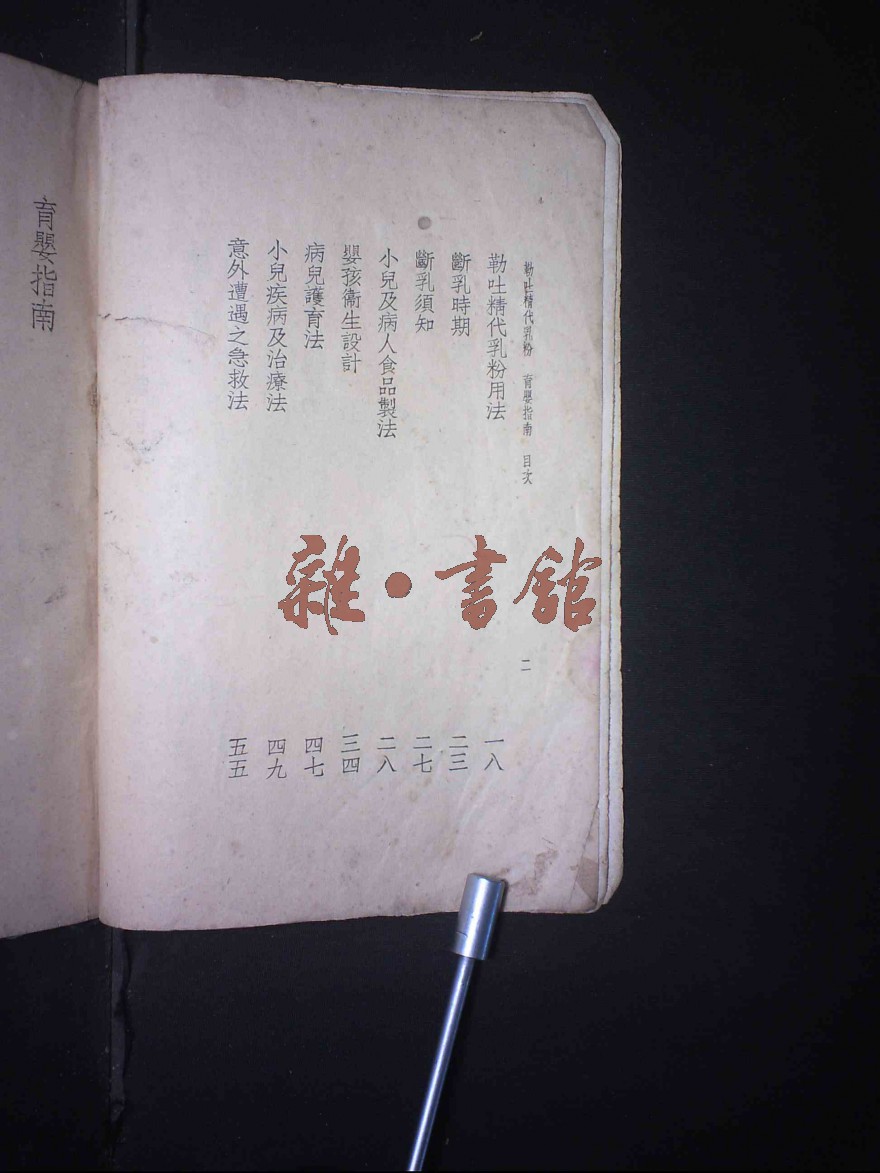 勒吐精代乳粉 育嬰指南 目次 二
勒吐精代乳粉用法 一八
斷乳時期 二三
斷乳須知 二七
小兒及病人食品製法 二八
嬰孩衞生設計 三四
病兒護育法 四七
小兒疾病及治療法 四九
意外遭遇之急救法 五五
育嬰指南
雜·書館